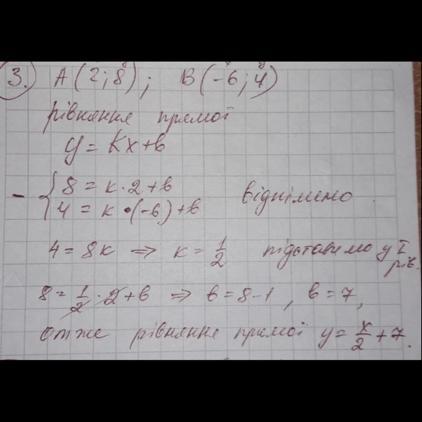 3. A(2;8); B(-6;4)
рівняння прямої
y = kx+b
- { 8 = k·2+b
4 = k·(-6)+b віднімемо.
4 = 8k ⇒ k = 1/2 підставимо у I рів.
8 = 1/2·2+b ⇒ b = 8-1, b = 7,
отже рівняння прямої y = x/2 + 7.